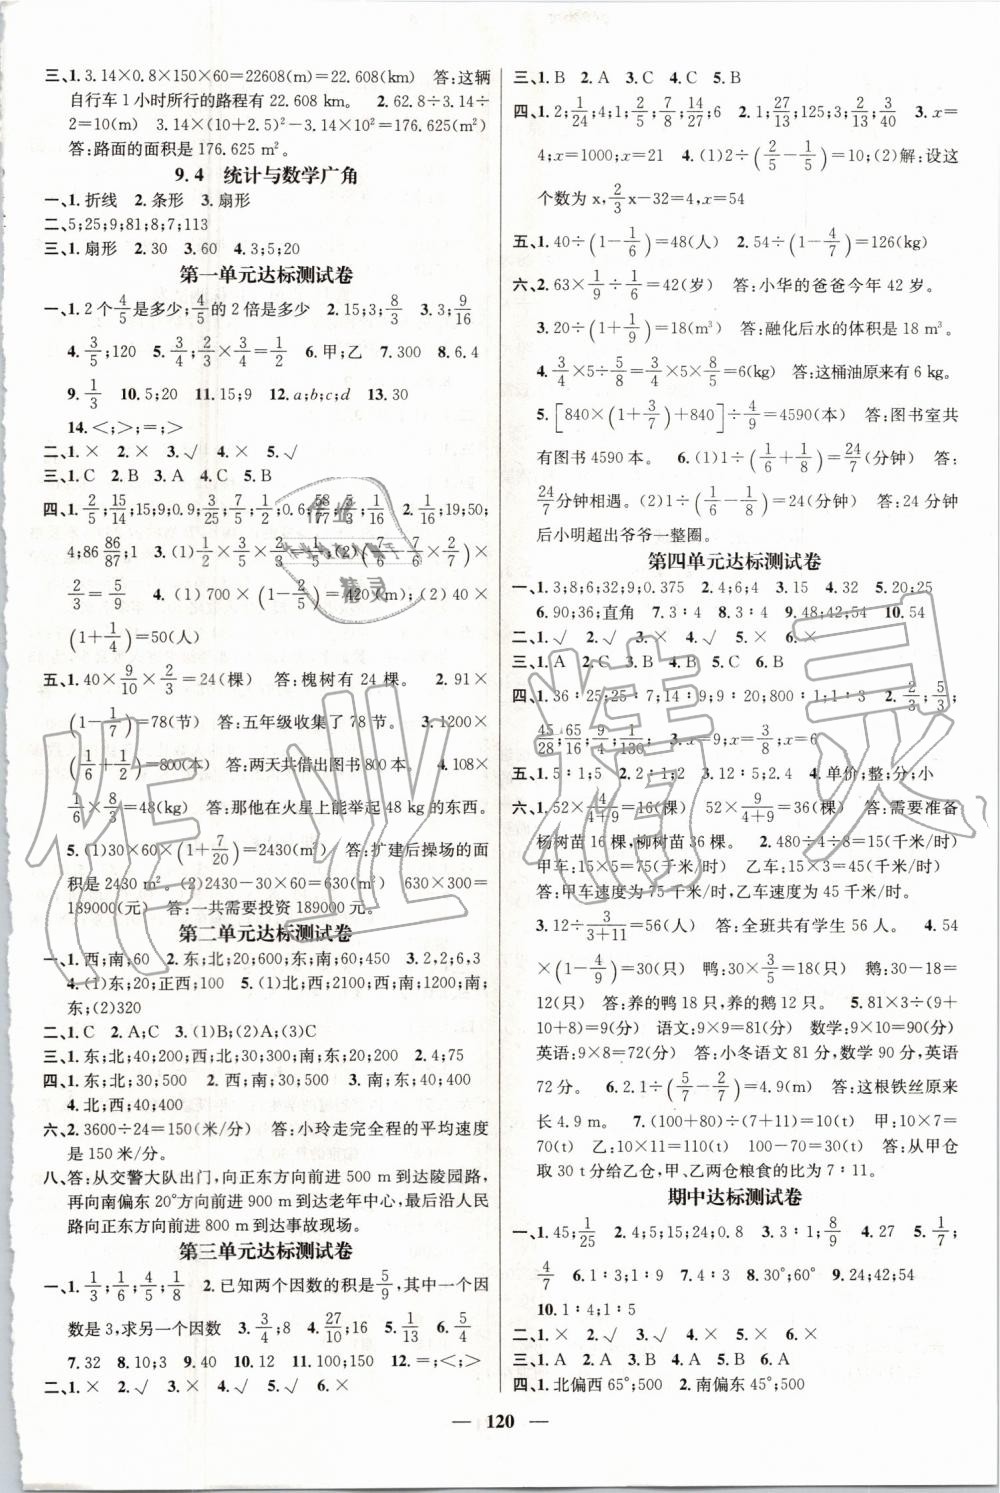 三、1. 3.14×0.8×150×60=22608(m)=22.608(km) 答:这辆
自行车1小时所行的路程有22.608 km。 2. 62.8÷3.14÷
2=10(m) 3.14×(10+2.5)²-3.14×10²=176.625(m²)
答:路面的面积是176.625 m²。
9.4 统计与数学广角
一、1. 折线 2. 条形 3. 扇形
二、5;25;9;81;8;7;113
三、1. 扇形 2. 30 3. 60 4. 3;5;20
第一单元达标测试卷
一、1. 2个4/5是多少;4/5的2倍是多少 2. 15;3;8/3 3. 3;9/16
4. 3/5;120 5. 3/4;2/3×3/4=1/2 6. 甲;乙 7. 300 8. 6.4
9. 1/3 10. 5;20 11. 15;9 12. a;b;c;d 13. 30
14. <;>;=;>
二、1. × 2. × 3. √ 4. × 5. √
三、1. C 2. B 3. A 4. C 5. B
四、1. 2/5;15/14;15;9;3/25;7/5;1/2;0.6;58/77;5/3;1/16 2. 1/16;19;50;
4;86 86/87 3. (1)
2/3=5/9 4. (1)700×(1-2/5)=420(m);(2)40×
(1+1/4)=50(人)
五、1. 40×9/10×2/3=24(棵) 答:槐树有24棵。 2. 91×
(1-1/7)=78(节) 答:五年级收集了78节。 3. 1200×
(1/6+1/2)=800(本) 答:两天共借出图书800本。 4. 108×
1/6×8/3=48(kg) 答:那他在火星上能举起48 kg的东西。
5. (1)30×60×(1+7/20)=2430(m²) 答:扩建后操场的面
积是2430 m²。 (2)2430-30×60=630(m²) 630×300=
189000(元) 答:一共需要投资189000元。
第二单元达标测试卷
一、1. 西;南;60 2. 东;北;20;600;东;南;60;450 3. 2,2;6,3
4. (1)东;20;正西;100 5. (1)北;西;2100;西;南;1200;南;
东;(2)320
二、1. C 2. A;C 3. (1)B;(2)A;(3)C
三、1. 东;北;40;200;西;北;30;300;东;南;20;200 2. 4;75
四、1. 东;北;30;500 2. 西;南;30;500 3. 东;南;40;400
4. 北;西;40;400
六、2. 3600÷24=150(米/分) 答:小玲走完全程的平均速度
是150米/分。
八、答:从交警大队出门,向正东方向前进500 m到达陵园路,
再向南偏东20°方向前进900 m到达老年中心,最后沿人民
路向正东方向前进800 m到达事故现场。
第三单元达标测试卷
一、1. 1/3;1/6;4/5;1/8 2. 已知两个因数的积是5/9,其中一个因
数是3,求另一个因数 3. 3/4;8 4. 27/10;16 5. 1/13 6. 5/4
7. 32 8. 10 9. 40 10. 120;150 11. 100;150 12. =;<;>;<
二、1. × 2. √ 3. √ 4. √ 5. √ 6. ×
三、1. B 2. A 3. C 4. C 5. B
四、1. 2;1/24;4;1;5/8;2/7;7/8;14/27;6 2. 1;27/13;125;2/13;3/40 3. x=
4;x=1000;x=21 4. (1)2÷(2/5-1/5)=10;(2)解:设这
个数为x,2/3x-32=4,x=54
五、1. 40÷(1-1/6)=48(人) 2. 54÷(1-4/7)=126(kg)
六、2. 63×1/9÷1/6=42(岁) 答:小华的爸爸今年42岁。
3. 20÷(1+1/9)=18(m³) 答:融化后水的体积是18 m³。
4. 3/4×5÷5/8=3/4×5×8/5=6(kg) 答:这桶油原来有6 kg。
5. [840×(1+3/7)+840]÷4/9=4590(本) 答:图书室共
有图书4590本。 6. (1)1÷(1/6+1/8)=24/7(分钟) 答:
24/7分钟相遇。(2)1÷(1/6-1/8)=24(分钟) 答:24分钟
后小明超出爷爷一整圈。
第四单元达标测试卷
一、1. 3;8;6;32;9;60 2. 4;6;4 3. 15 4. 32 5. 20;25
6. 90;36;直角 7. 3∶4 8. 3∶4 9. 48;42;54 10. 54
二、1. √ 2. √ 3. × 4. √ 5. × 6. ×
三、1. A 2. C 3. B 4. B 5. C 6. B
四、1. 36∶25;25∶7;14∶9;9∶20;800∶1;1∶3 2. 2/3;5/3;
45/28;65/16;9/4;1/130 3. x=3/8;x=6
五、1. 5∶1;5 2. 2∶1;2 3. 1200∶9 4. 单价;整;分;小
六、1. 52×4/(4+9)=16(棵) 52×9/(4+9)=36(棵) 答:需要准备
杨树苗16棵,柳树苗36棵。 2. 480÷4÷8=15(千米/时)
甲车:15×5=75(千米/时) 乙车:15×3=45(千米/时)
答:甲车速度为75千米/时,乙车速度为45千米/时。
3. 12÷3/(3+11)=56(人) 答:全班共有学生56人。 4. 54
×(1-4/9)=30(只) 鸭:30×3/5=18(只) 鹅:30-18=
12(只) 答:养的鸭18只,养的鹅12只。 5. 81×3÷(9+
10+8)=9(分) 语文:9×9=81(分) 数学:9×10=90(分)
英语:9×8=72(分) 答:小冬语文81分,数学90分,英语
72分。 6. 2.1÷(5/7-2/7)=4.9(m) 答:这根铁丝原来
长4.9 m。 7. (100+80)÷(7+11)=10(t) 甲:10×7=
70(t) 乙:10×11=110(t) 100-70=30(t) 答:从甲仓
取30 t分给乙仓,甲、乙两仓粮食的比为7∶11。
期中达标测试卷
一、1. 45;1/25 2. 4;5;15;24;0.8 3. 3∶1;8/9 4. 27 5. 1/7;
4/7 6. 1∶3;1∶9 7. 4∶3 8. 30°;60° 9. 24;42;54
10. 1∶4;1∶5
二、1. × 2. √ 3. √ 4. × 5. × 6. √
三、1. A 2. C 3. A 4. A 5. B 6. A
四、1. 北偏西65°;500 2. 南偏东45°;500
— 120 —
作业精灵